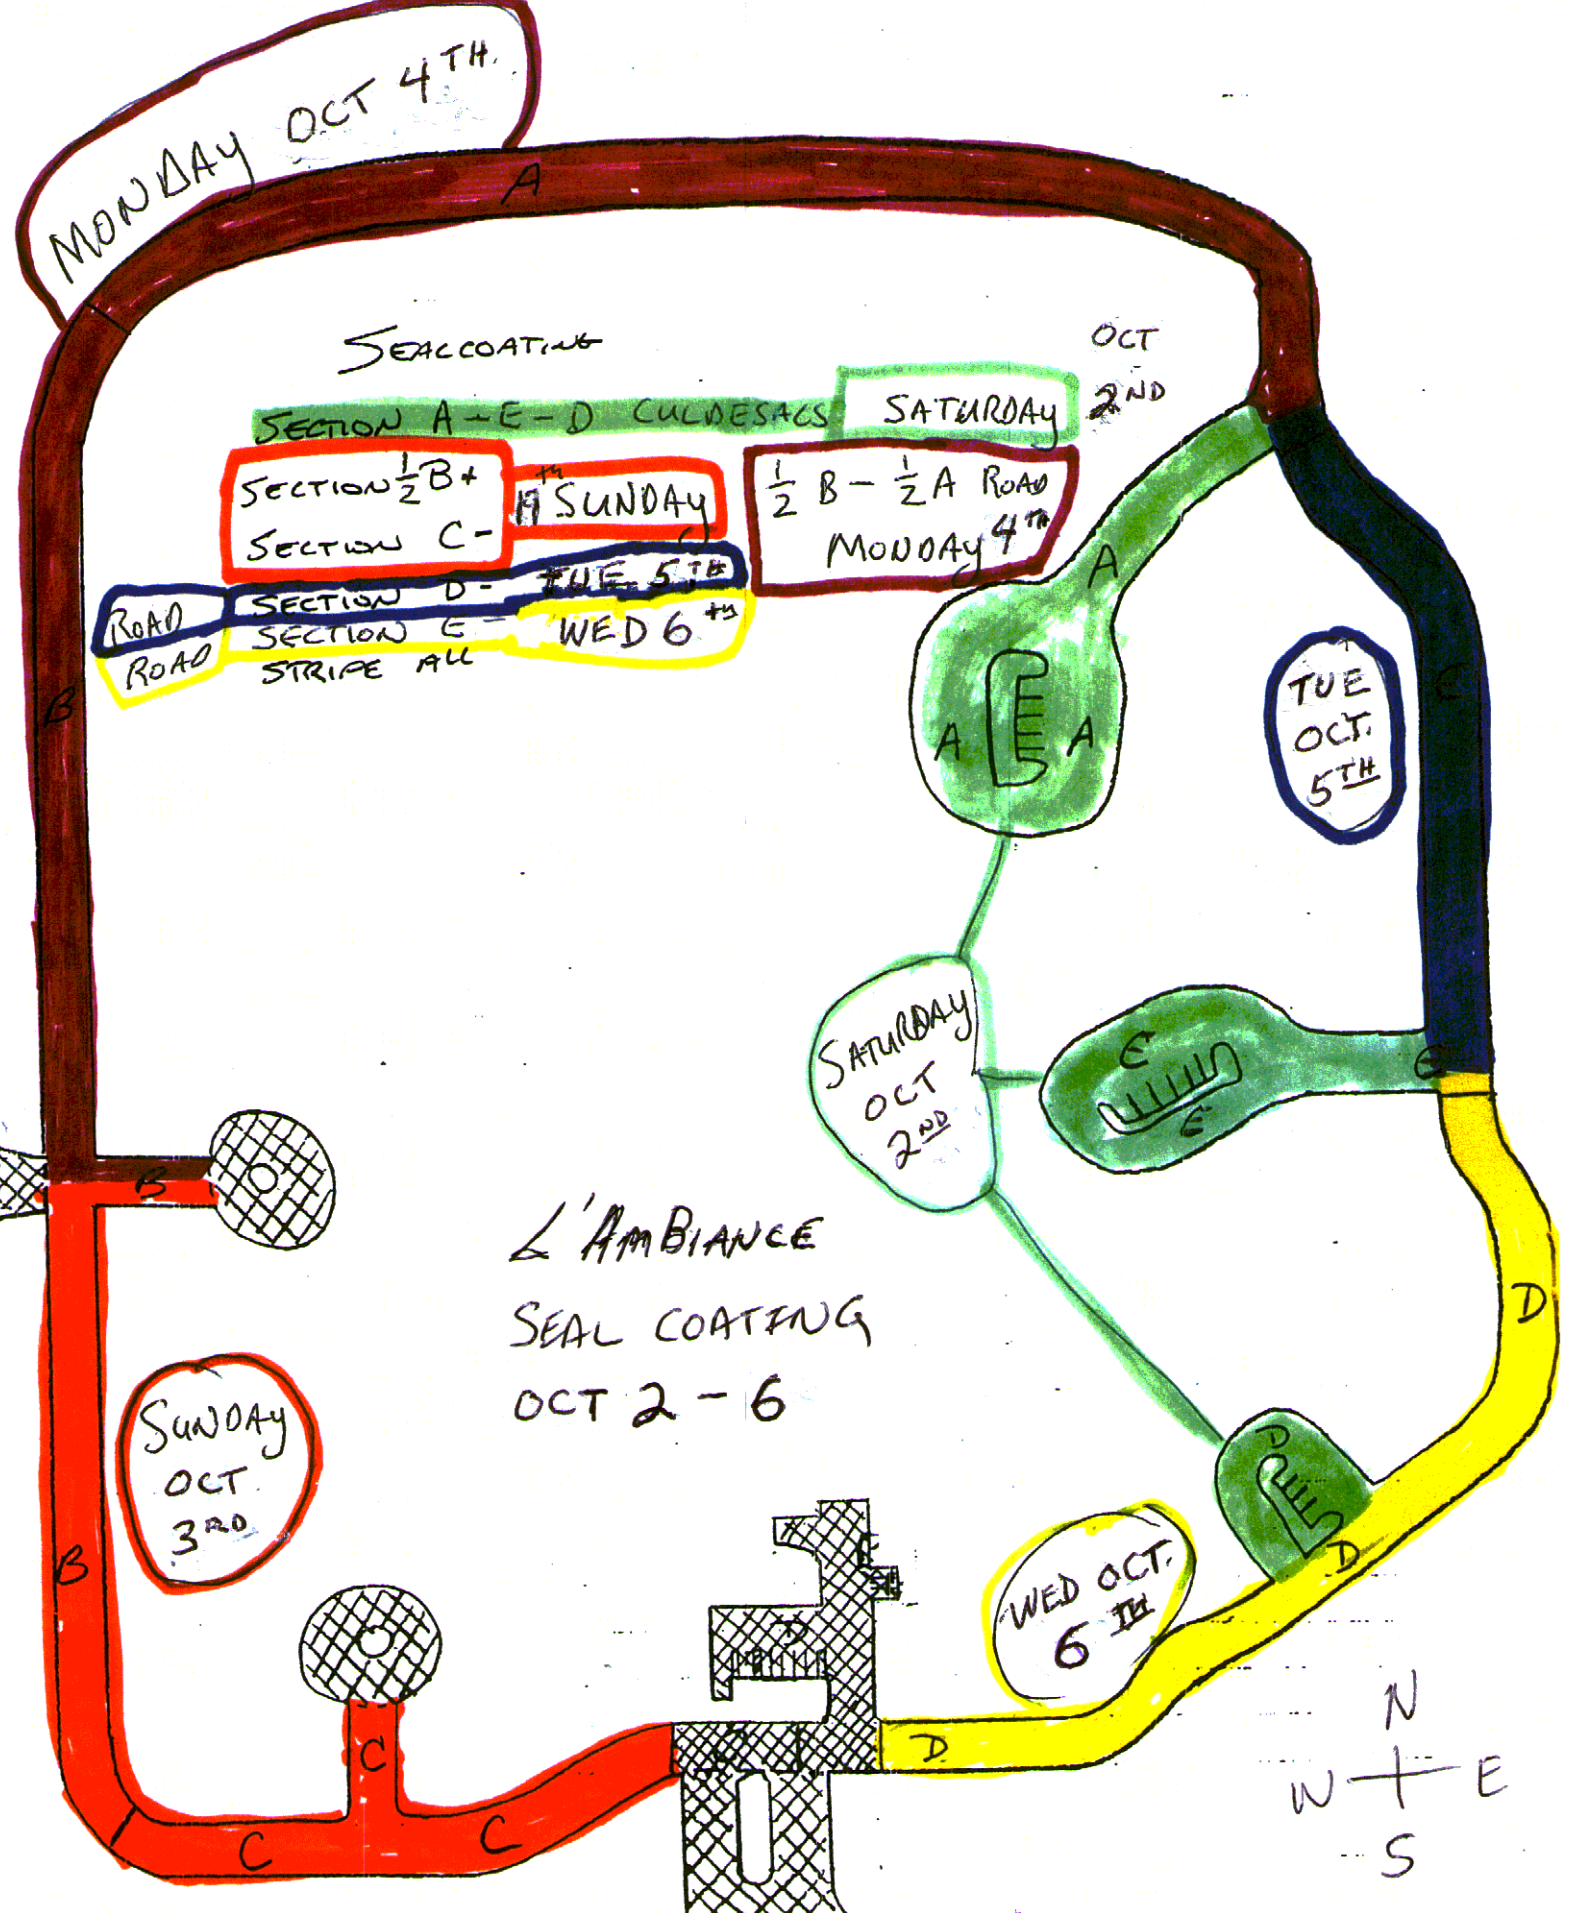 MONDAY OCT 4TH.
A
SEALCOATING
OCT
2ND
SECTION A-E-D CULDESACS SATURDAY
SECTION 1/2 B+
SECTION C-
SUNDAY
1/2 B - 1/2 A ROAD
MONDAY 4TH
ROAD SECTION D- TUE 5TH
ROAD SECTION E- WED 6th
STRIPE ALL
A
A
A
B
E
TUE
OCT.
5TH
SATURDAY
OCT
2ND
E
E
E
B
L'AMBIANCE
SEAL COATING
OCT 2-6
D
SUNDAY
OCT.
3RD
B
D
D
WED OCT.
6TH
D
C
C
C
D
N
W E
S